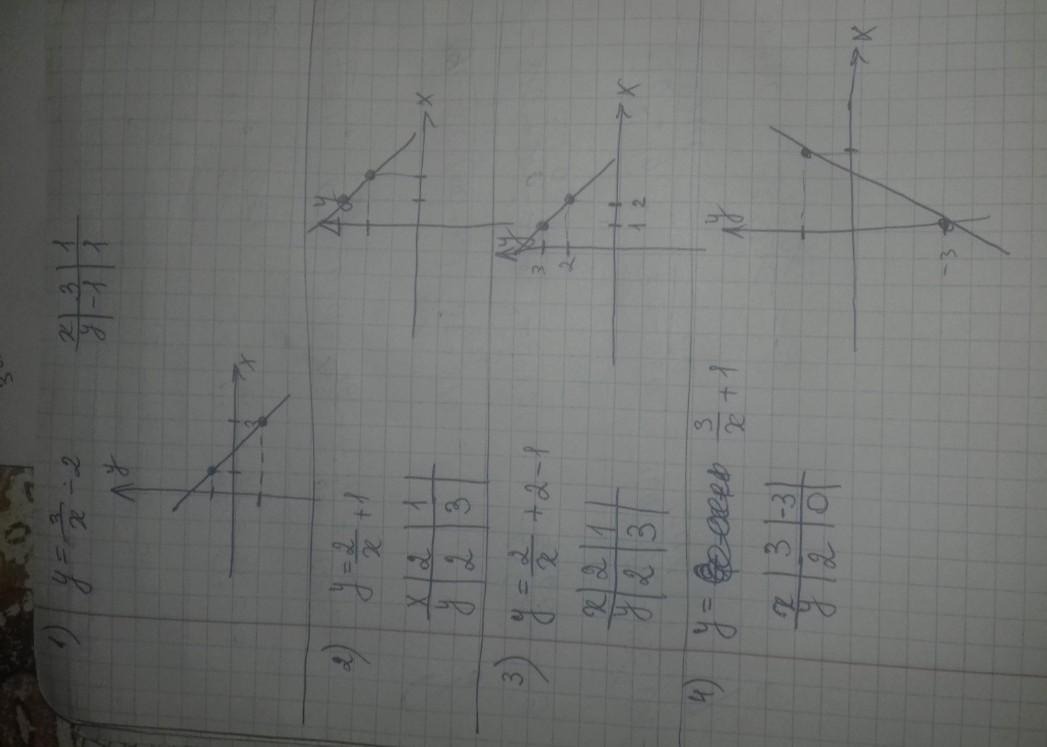 1) y = 3/x - 2
x | 3 | 1
y | -1 | 1
y
x
3
2) y = 2/x + 1
x | 2 | 1
y | 2 | 3
y
x
3) y = 2/x + 2 - 1
x | 2 | 1
y | 2 | 3
y
3
2
1 2
x
4) y = 3/x + 1
x | 3 | -3
y | 2 | 0
y
x
-3